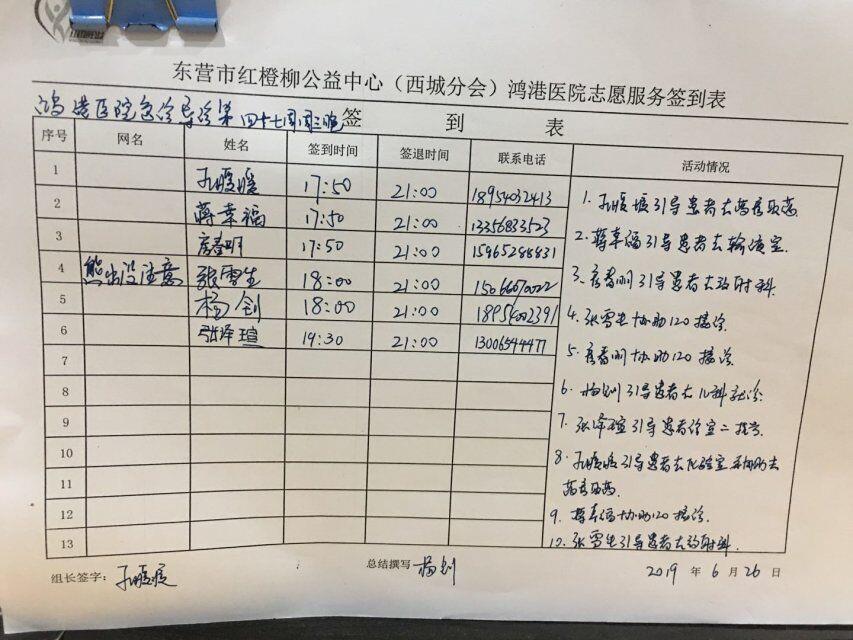 东营市红橙柳公益中心（西城分会）鸿港医院志愿服务签到表
鸿港医院急诊导诊第四十七周周三晚 签 到 表
序号 网名 姓名 签到时间 签退时间 联系电话 活动情况
1 孔暖暖 17:50 21:00 18954032413
2 蒋幸福 17:50 21:00 13356833523
3 房春明 17:50 21:00 15965288831
4 熊出没注意 张雪生 18:00 21:00
5 杨钊 18:00 21:00
6 张泽瑄 19:30 21:00 13006544477
7
8
9
10
11
12
13
1. 孔暖暖引导患者去药房取药
2. 蒋幸福引导患者去输液室
3. 房春明引导患者去放射科
4. 张雪生协助120接诊
5. 房春明协助120接诊
6. 杨钊引导患者去儿科就诊
7. 张泽瑄引导患者诊室二
8. 孔暖暖引导患者去化验室并协助去
药房取药
9. 蒋幸福协助120接诊
10. 张雪生引导患者去放射科
组长签字：孔暖暖 总结撰写 杨钊 2019 年 6 月 26 日